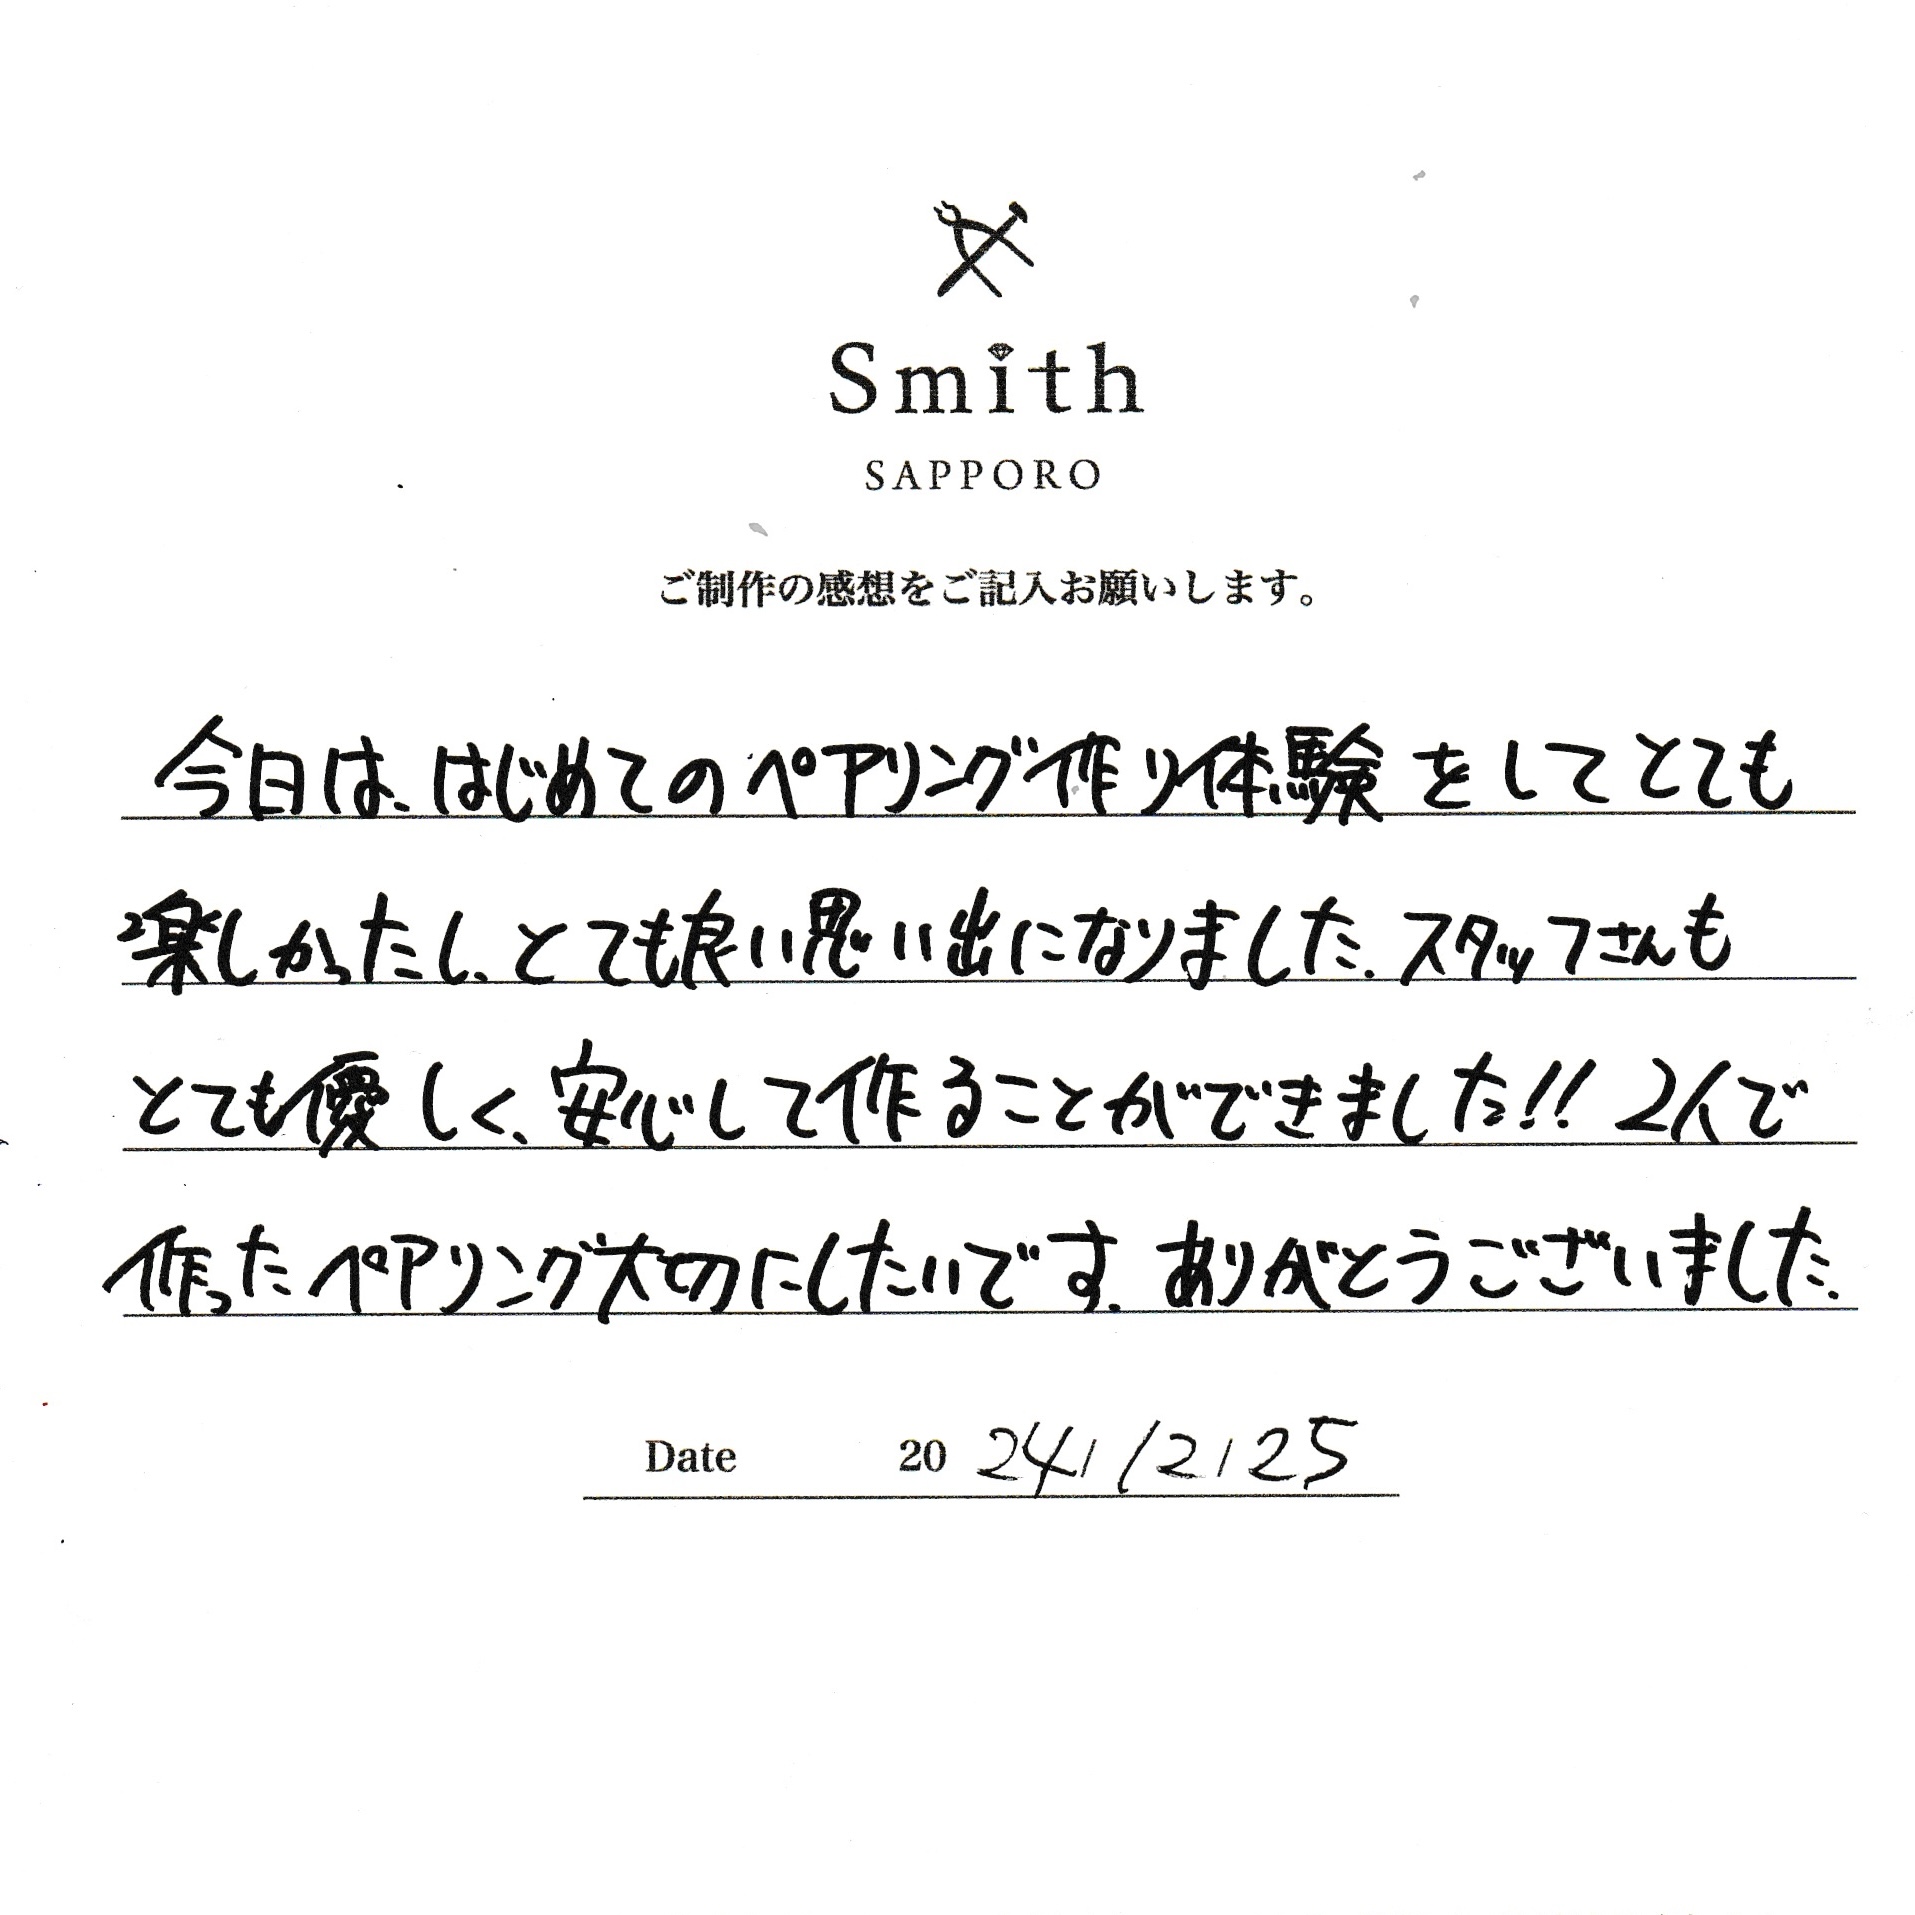 Smith
SAPPORO
ご制作の感想をご記入お願いします。
今日は、はじめてのペアリング作り体験をしてとても
楽しかったし、とても良い思い出になりました。スタッフさんも
とても優しく、安心して作ることができました!! 2人で
作ったペアリング大切にしたいです。ありがとうございました。
Date 2024/12/25